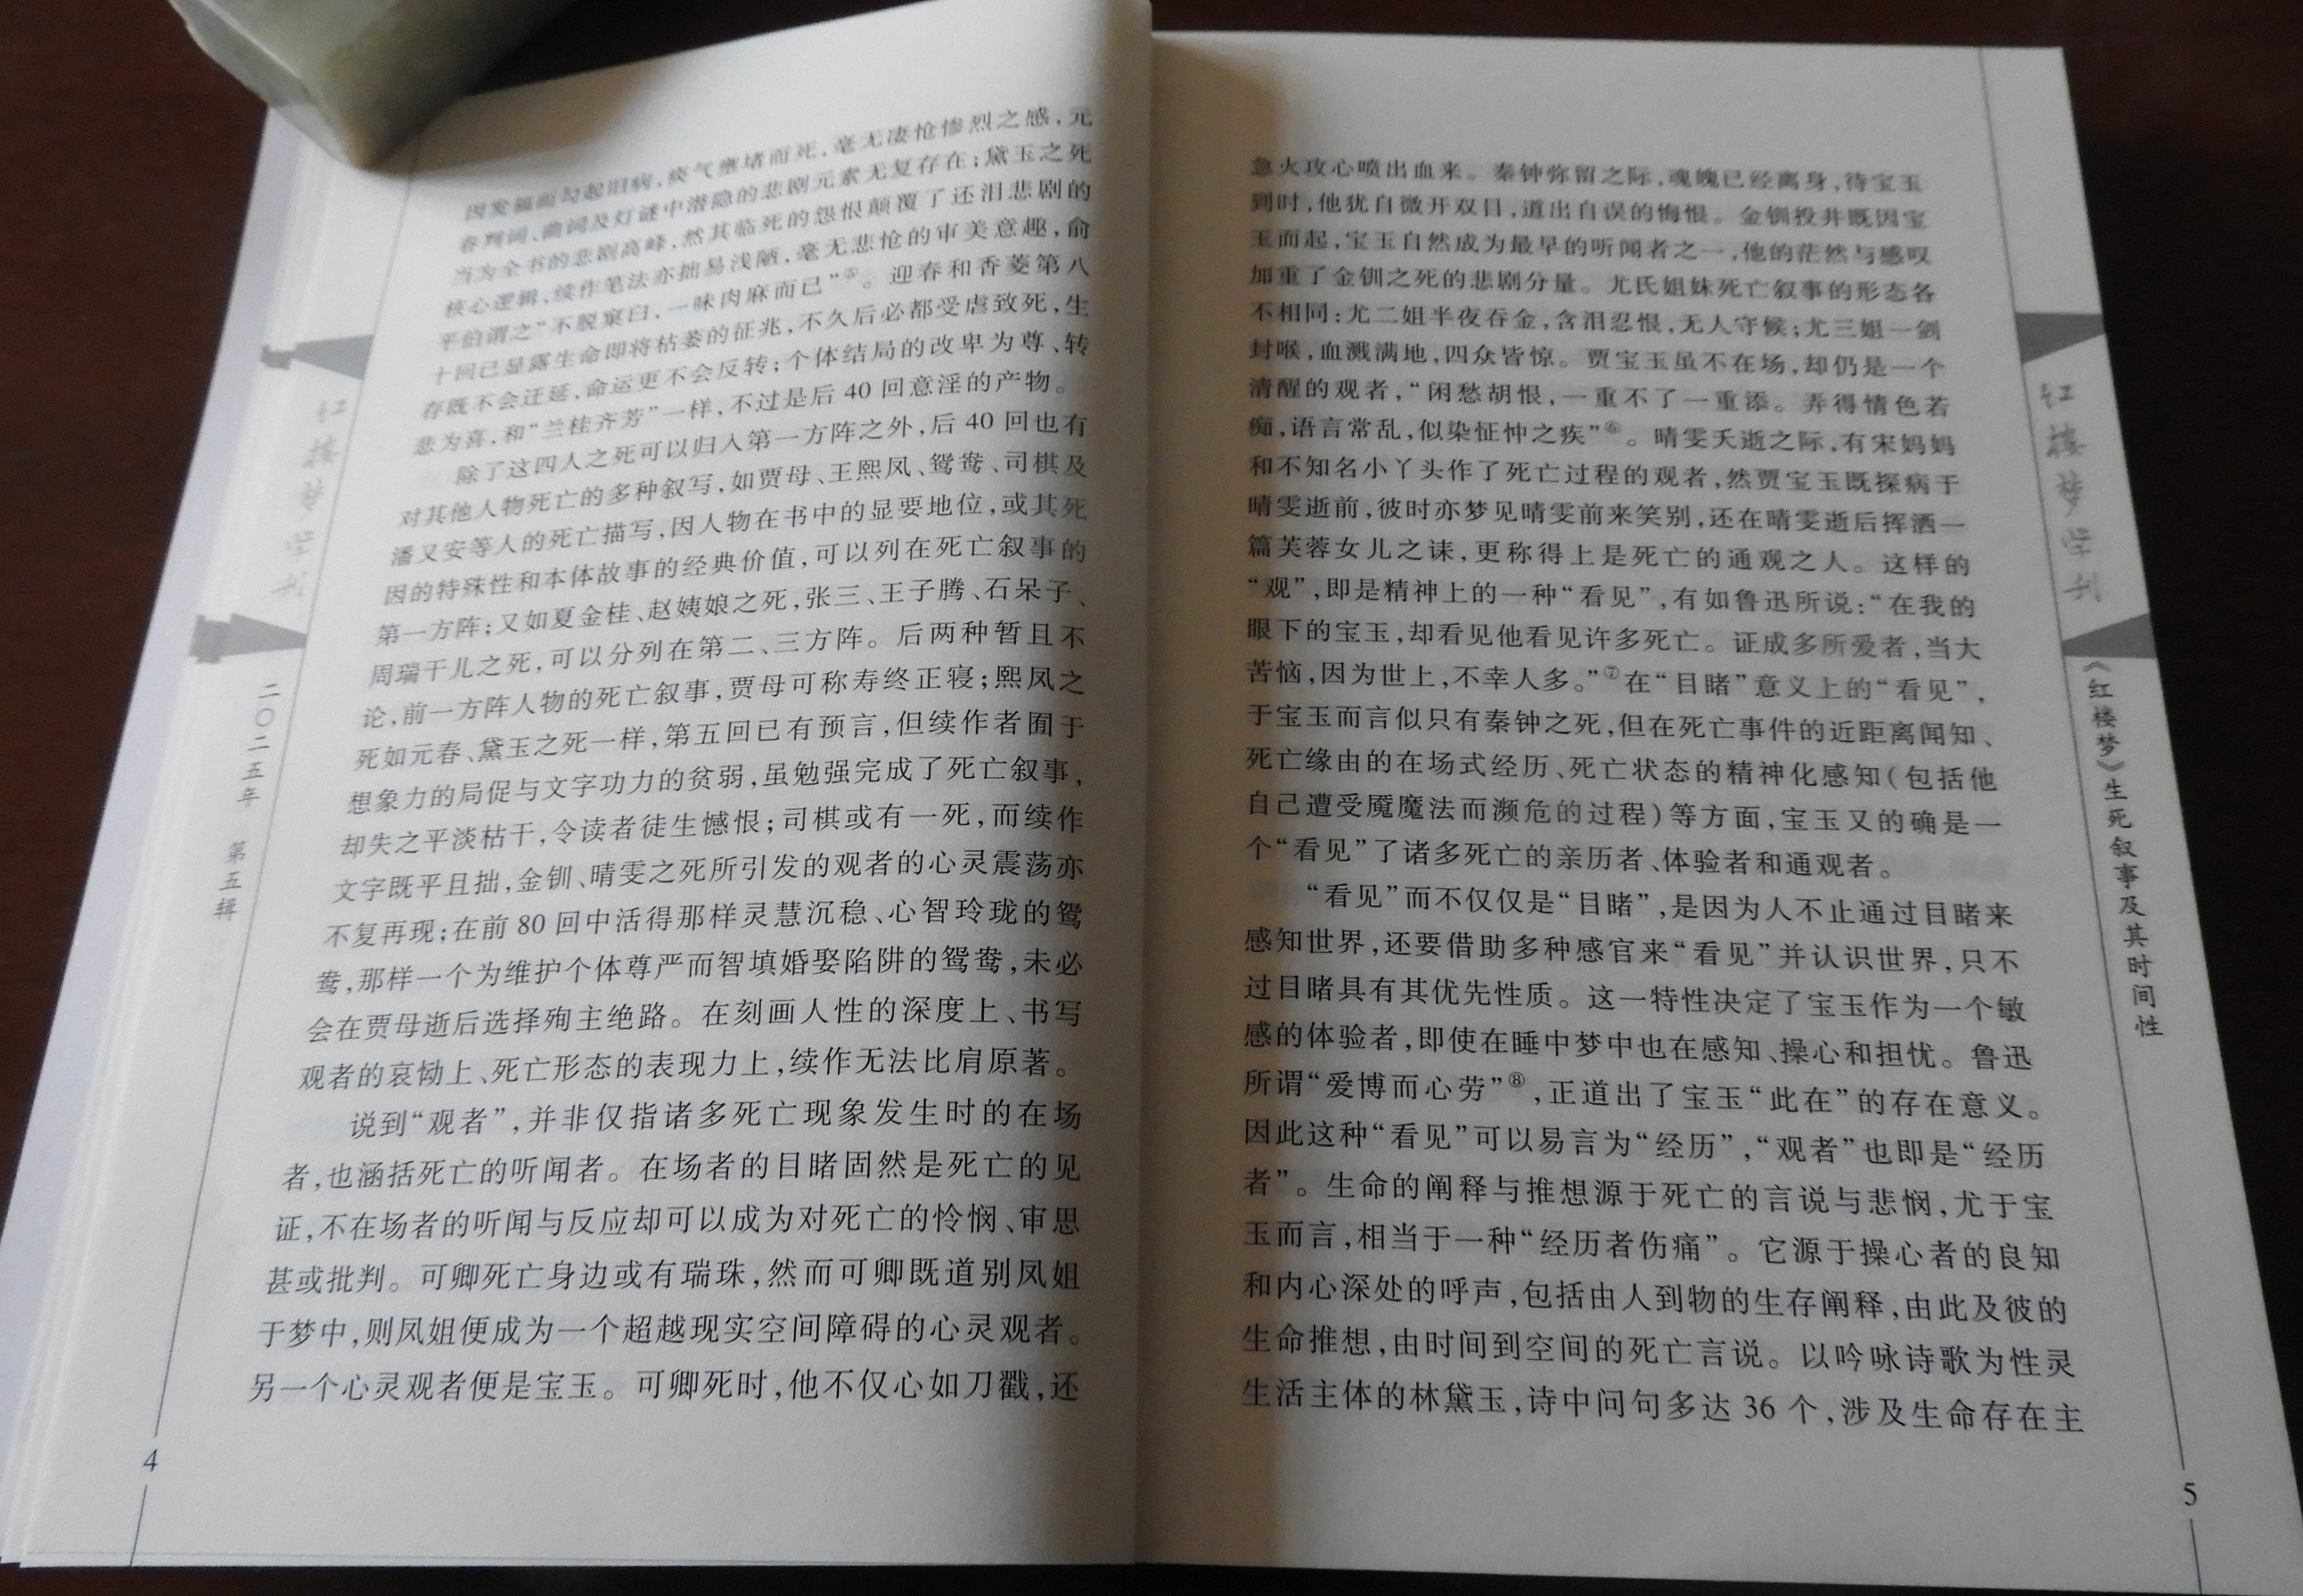 因发福而勾起旧病，痰气壅堵而死，毫无凄怆惨烈之感，元
春判词、曲词及灯谜中潜隐的悲剧元素无复存在；黛玉之死
当为全书的悲剧高峰，然其临死的怨恨颠覆了还泪悲剧的
核心逻辑，续作笔法亦拙易浅陋，毫无悲怆的审美意趣，俞
平伯谓之“不脱窠臼，一味肉麻而已”⑤。迎春和香菱第八
十回已显露生命即将枯萎的征兆，不久后必都受虐致死，生
存既不会迁延，命运更不会反转；个体结局的改卑为尊、转
悲为喜，和“兰桂齐芳”一样，不过是后40回意淫的产物。
除了这四人之死可以归入第一方阵之外，后40回也有
对其他人物死亡的多种叙写，如贾母、王熙凤、鸳鸯、司棋及
潘又安等人的死亡描写，因人物在书中的显要地位，或其死
因的特殊性和本体故事的经典价值，可以列在死亡叙事的
第一方阵；又如夏金桂、赵姨娘之死，张三、王子腾、石呆子、
周瑞干儿之死，可以分列在第二、三方阵。后两种暂且不
论，前一方阵人物的死亡叙事，贾母可称寿终正寝；熙凤之
死如元春、黛玉之死一样，第五回已有预言，但续作者囿于
想象力的局促与文字功力的贫弱，虽勉强完成了死亡叙事，
却失之平淡枯干，令读者徒生憾恨；司棋或有一死，而续作
文字既平且拙，金钏、晴雯之死所引发的观者的心灵震荡亦
不复再现；在前80回中活得那样灵慧沉稳、心智玲珑的鸳
鸯，那样一个为维护个体尊严而智填婚娶陷阱的鸳鸯，未必
会在贾母逝后选择殉主绝路。在刻画人性的深度上、书写
观者的哀恸上、死亡形态的表现力上，续作无法比肩原著。
说到“观者”，并非仅指诸多死亡现象发生时的在场
者，也涵括死亡的听闻者。在场者的目睹固然是死亡的见
证，不在场者的听闻与反应却可以成为对死亡的怜悯、审思
甚或批判。可卿死亡身边或有瑞珠，然而可卿既道别凤姐
于梦中，则凤姐便成为一个超越现实空间障碍的心灵观者。
另一个心灵观者便是宝玉。可卿死时，他不仅心如刀戳，还
红楼梦学刊
二〇二五年 第五辑
4
急火攻心喷出血来。秦钟弥留之际，魂魄已经离身，待宝玉
到时，他犹自微开双目，道出自误的悔恨。金钏投井既因宝
玉而起，宝玉自然成为最早的听闻者之一，他的茫然与感叹
加重了金钏之死的悲剧分量。尤氏姐妹死亡叙事的形态各
不相同：尤二姐半夜吞金，含泪忍恨，无人守候；尤三姐一剑
封喉，血溅满地，四众皆惊。贾宝玉虽不在场，却仍是一个
清醒的观者，“闲愁胡恨，一重不了一重添。弄得情色若
痴，语言常乱，似染怔忡之疾”⑥。晴雯夭逝之际，有宋妈妈
和不知名小丫头作了死亡过程的观者，然贾宝玉既探病于
晴雯逝前，彼时亦梦见晴雯前来笑别，还在晴雯逝后挥洒一
篇芙蓉女儿之诔，更称得上是死亡的通观之人。这样的
“观”，即是精神上的一种“看见”，有如鲁迅所说：“在我的
眼下的宝玉，却看见他看见许多死亡。证成多所爱者，当大
苦恼，因为世上，不幸人多。”⑦在“目睹”意义上的“看见”，
于宝玉而言似只有秦钟之死，但在死亡事件的近距离闻知、
死亡缘由的在场式经历、死亡状态的精神化感知（包括他
自己遭受魇魔法而濒危的过程）等方面，宝玉又的确是一
个“看见”了诸多死亡的亲历者、体验者和通观者。
“看见”而不仅仅是“目睹”，是因为人不止通过目睹来
感知世界，还要借助多种感官来“看见”并认识世界，只不
过目睹具有其优先性质。这一特性决定了宝玉作为一个敏
感的体验者，即使在睡中梦中也在感知、操心和担忧。鲁迅
所谓“爱博而心劳”⑧，正道出了宝玉“此在”的存在意义。
因此这种“看见”可以易言为“经历”，“观者”也即是“经历
者”。生命的阐释与推想源于死亡的言说与悲悯，尤于宝
玉而言，相当于一种“经历者伤痛”。它源于操心者的良知
和内心深处的呼声，包括由人到物的生存阐释，由此及彼的
生命推想，由时间到空间的死亡言说。以吟咏诗歌为性灵
生活主体的林黛玉，诗中问句多达36个，涉及生命存在主
红楼梦学刊
《红楼梦》生死叙事及其时间性
5